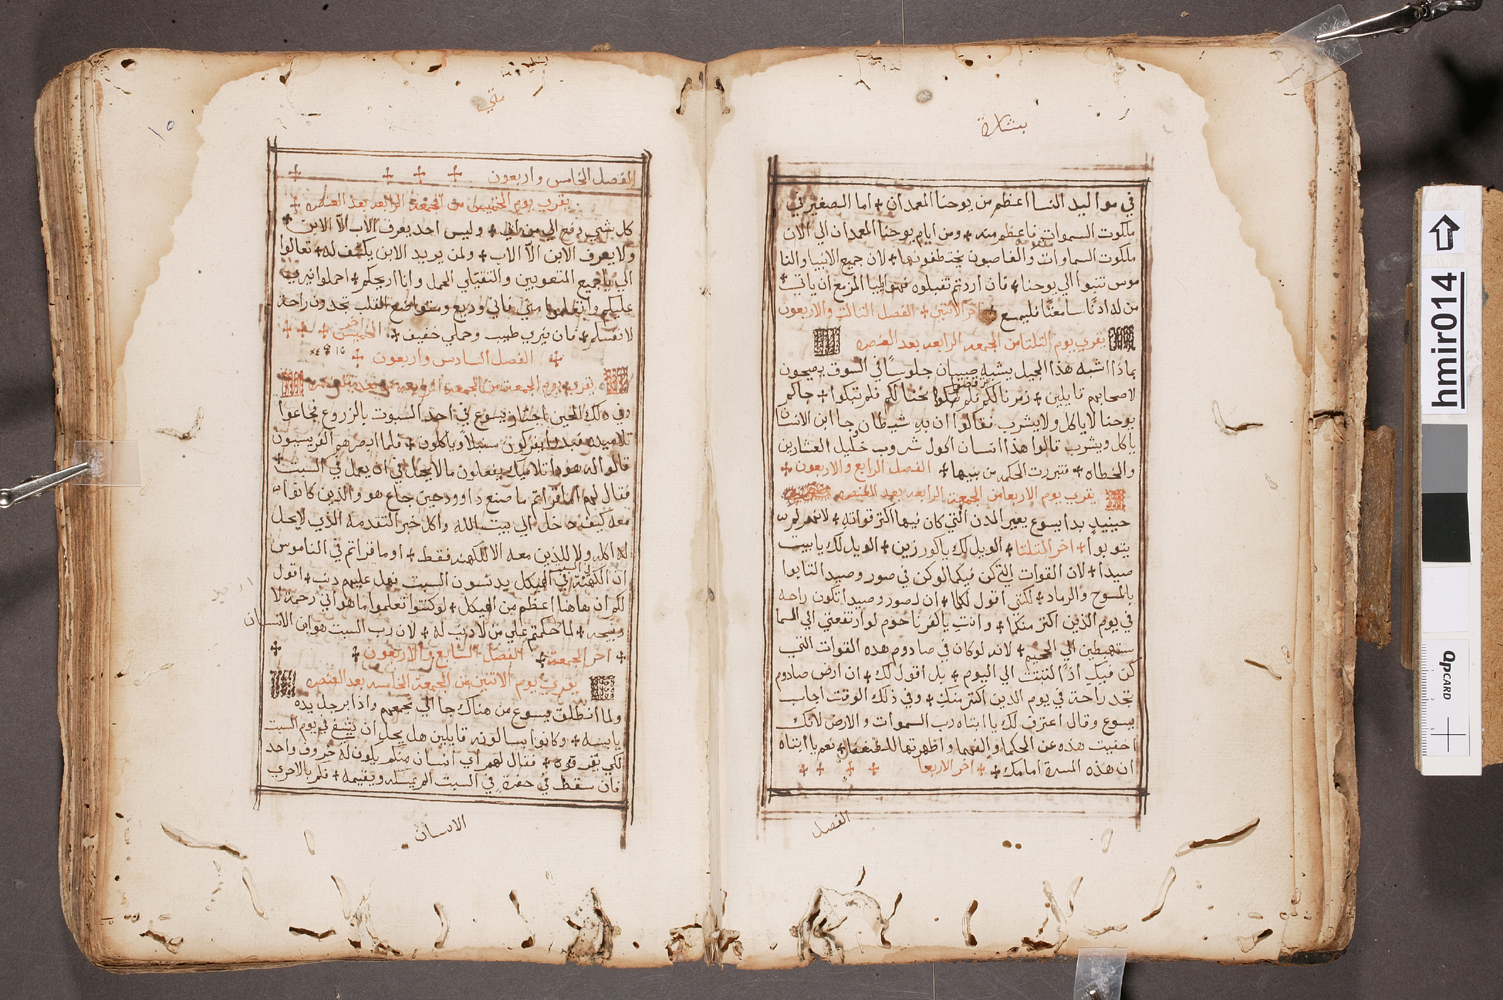 بشارة
في مواليد النسا اعظم من يوحنا المعمدان + اما الصغير في
ملكوت السموات فاعظم منه + ومن ايام يوحنا المعمدان الي الان
ملكوت السماوات والغاصبون يختطفونها + لان جميع الانبيا والنا
موس تنبوا الي يوحنا + فان اردتم تقبلوه فهو ايليا المزمع ان ياتي +
من له اذنا سامعتا فليسمع اخر الاثنين + الفصل الثالث والاربعون
يقري يوم الثلثا من الجمعه الرابعه بعد العنصره
بماذا اشبه هذا الجيل يشبه صبيان جلوسا في السوق يصيحون
لاصحابهم قايلين + زمرنا لكم فلم ترقصوا نحنا لكم فلم تبكوا + جاكم
يوحنا لا ياكل ولا يشرب فقالوا ان به شيطان جا ابن الانسان
ياكل ويشرب قالوا هذا انسان اكول شروب خليل العشارين
والخطاه + فتبررت الحكمه من بنيها + الفصل الرابع والاربعون +
يقرى يوم الاربعا من الجمعة الرابعه بعد العنصره
حينيد بدا يسوع يعير المدن التي كان فيها اكثر قواته + لانهم لم
يتوبوا + اخر الثلثا + الويل لك ياكورزين + الويل لك يا بيت
صيدا + لان القوات التي كن فيكما لو كن في صور وصيدا لتابوا
بالمسوح والرماد + لكني اقول لكما + ان لصور وصيدا تكون راحه
في يوم الدين اكثر منكما + وانت ياكفرناحوم لو ارتفعتي الي السما
ستهبطين الي الجحيم + لانه لو كان في صادوم هذه القوات التي
كن فيك اذا لثبتت الي اليوم + بل اقول لك + ان ارض صادوم
تجد راحة في يوم الدين اكثر منك + وفي ذلك الوقت اجاب
يسوع وقال اعترف لك يا ابتاه رب السموات والارض لانك
اخفيت هذه عن الحكما والفهما واظهرتها للضعفا + نعم يا ابتاه
ان هذه المسرة امامك + + اخر الاربعا + + + +
الفصل
متي
١٥
الفصل الخامس واربعون + + + +
يقرى يوم الخميس من الجمعه الرابعه بعد العنصره +
كل شي دفع الي من ابي + وليس احد يعرف الاب الا الابن +
ولا يعرف الابن الا الاب + ولمن يريد الابن يكشف له + تعالوا
الي يا جميع المتعوبين والثقيلي الحمل وانا اريحكم + احملوا نيري
عليكم وتعلموا مني فاني وديع ومتواضع القلب تجدون راحة
لانفسكم + فان نيري طيب وحملي خفيف + اخر الخميس + + +
+ الفصل السادس واربعون +
يقرى يوم الجمعة من الجمعة الرابعه
في ذلك الحين اجتاز يسوع في احد السبوت بالزروع فجاعوا
تلاميذه فبدا يفركون سنبلا وياكلون + فلما ابصرهم الفريسيون
قالوا له هوذا تلاميذك يفعلون ما لا يحل ان يعمل في السبت +
فقال لهم اما قراتم ما صنع داوود حين جاع هو والذين كانوا
معه كيف دخل الي بيت الله واكل خبز التقدمه الذي لا يحل
له اكله ولا للذين معه الا للكهنه فقط + اوما قراتم في الناموس
ان الكهنة في الهيكل يدنسون السبت فهل عليهم دنب + اقول
لكم ان هاهنا اعظم من الهيكل + لو كنتوا تعلموا ما هو اني رحمة لا
دبيحه + لما حكمتم علي من لا دنب له + لان رب السبت هو ابن الانسان
+ اخر الجمعة + الفصل السابع والاربعون + +
يقرى يوم الاثنين من الجمعة الخامسه بعد العنصره
ولما انطلق يسوع من هناك جا الي مجمعهم واذا برجل يده
يابسه + وكانوا يسالونه قايلين هل يحل ان يشفي في يوم السبت
لكي يقرفوه + فقال لهم اي انسان منكم يكون له خروف واحد
فان سقط في حفرة في السبت افما يمسكه ويقيمه + فكم بالاحري
الانسان
hmir014
QPCARD